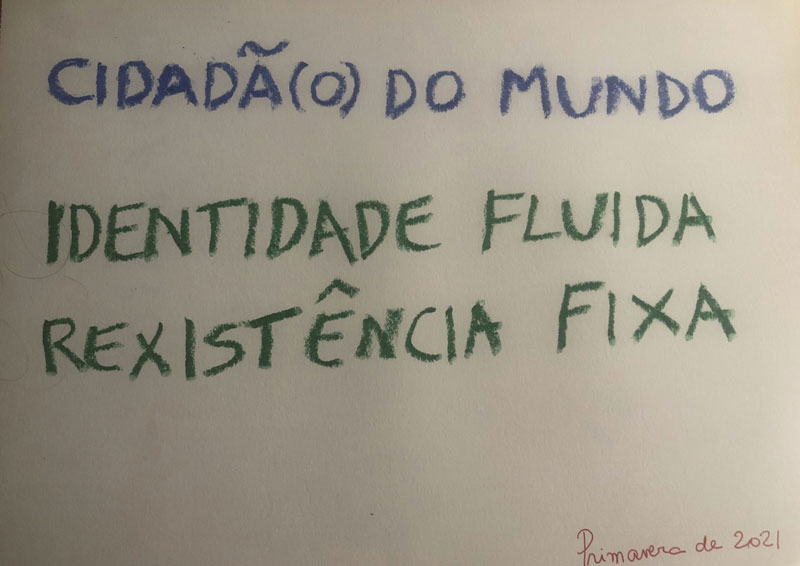 CIDADÃ(O) DO MUNDO
IDENTIDADE FLUIDA
REXISTÊNCIA FIXA
Primavera de 2021